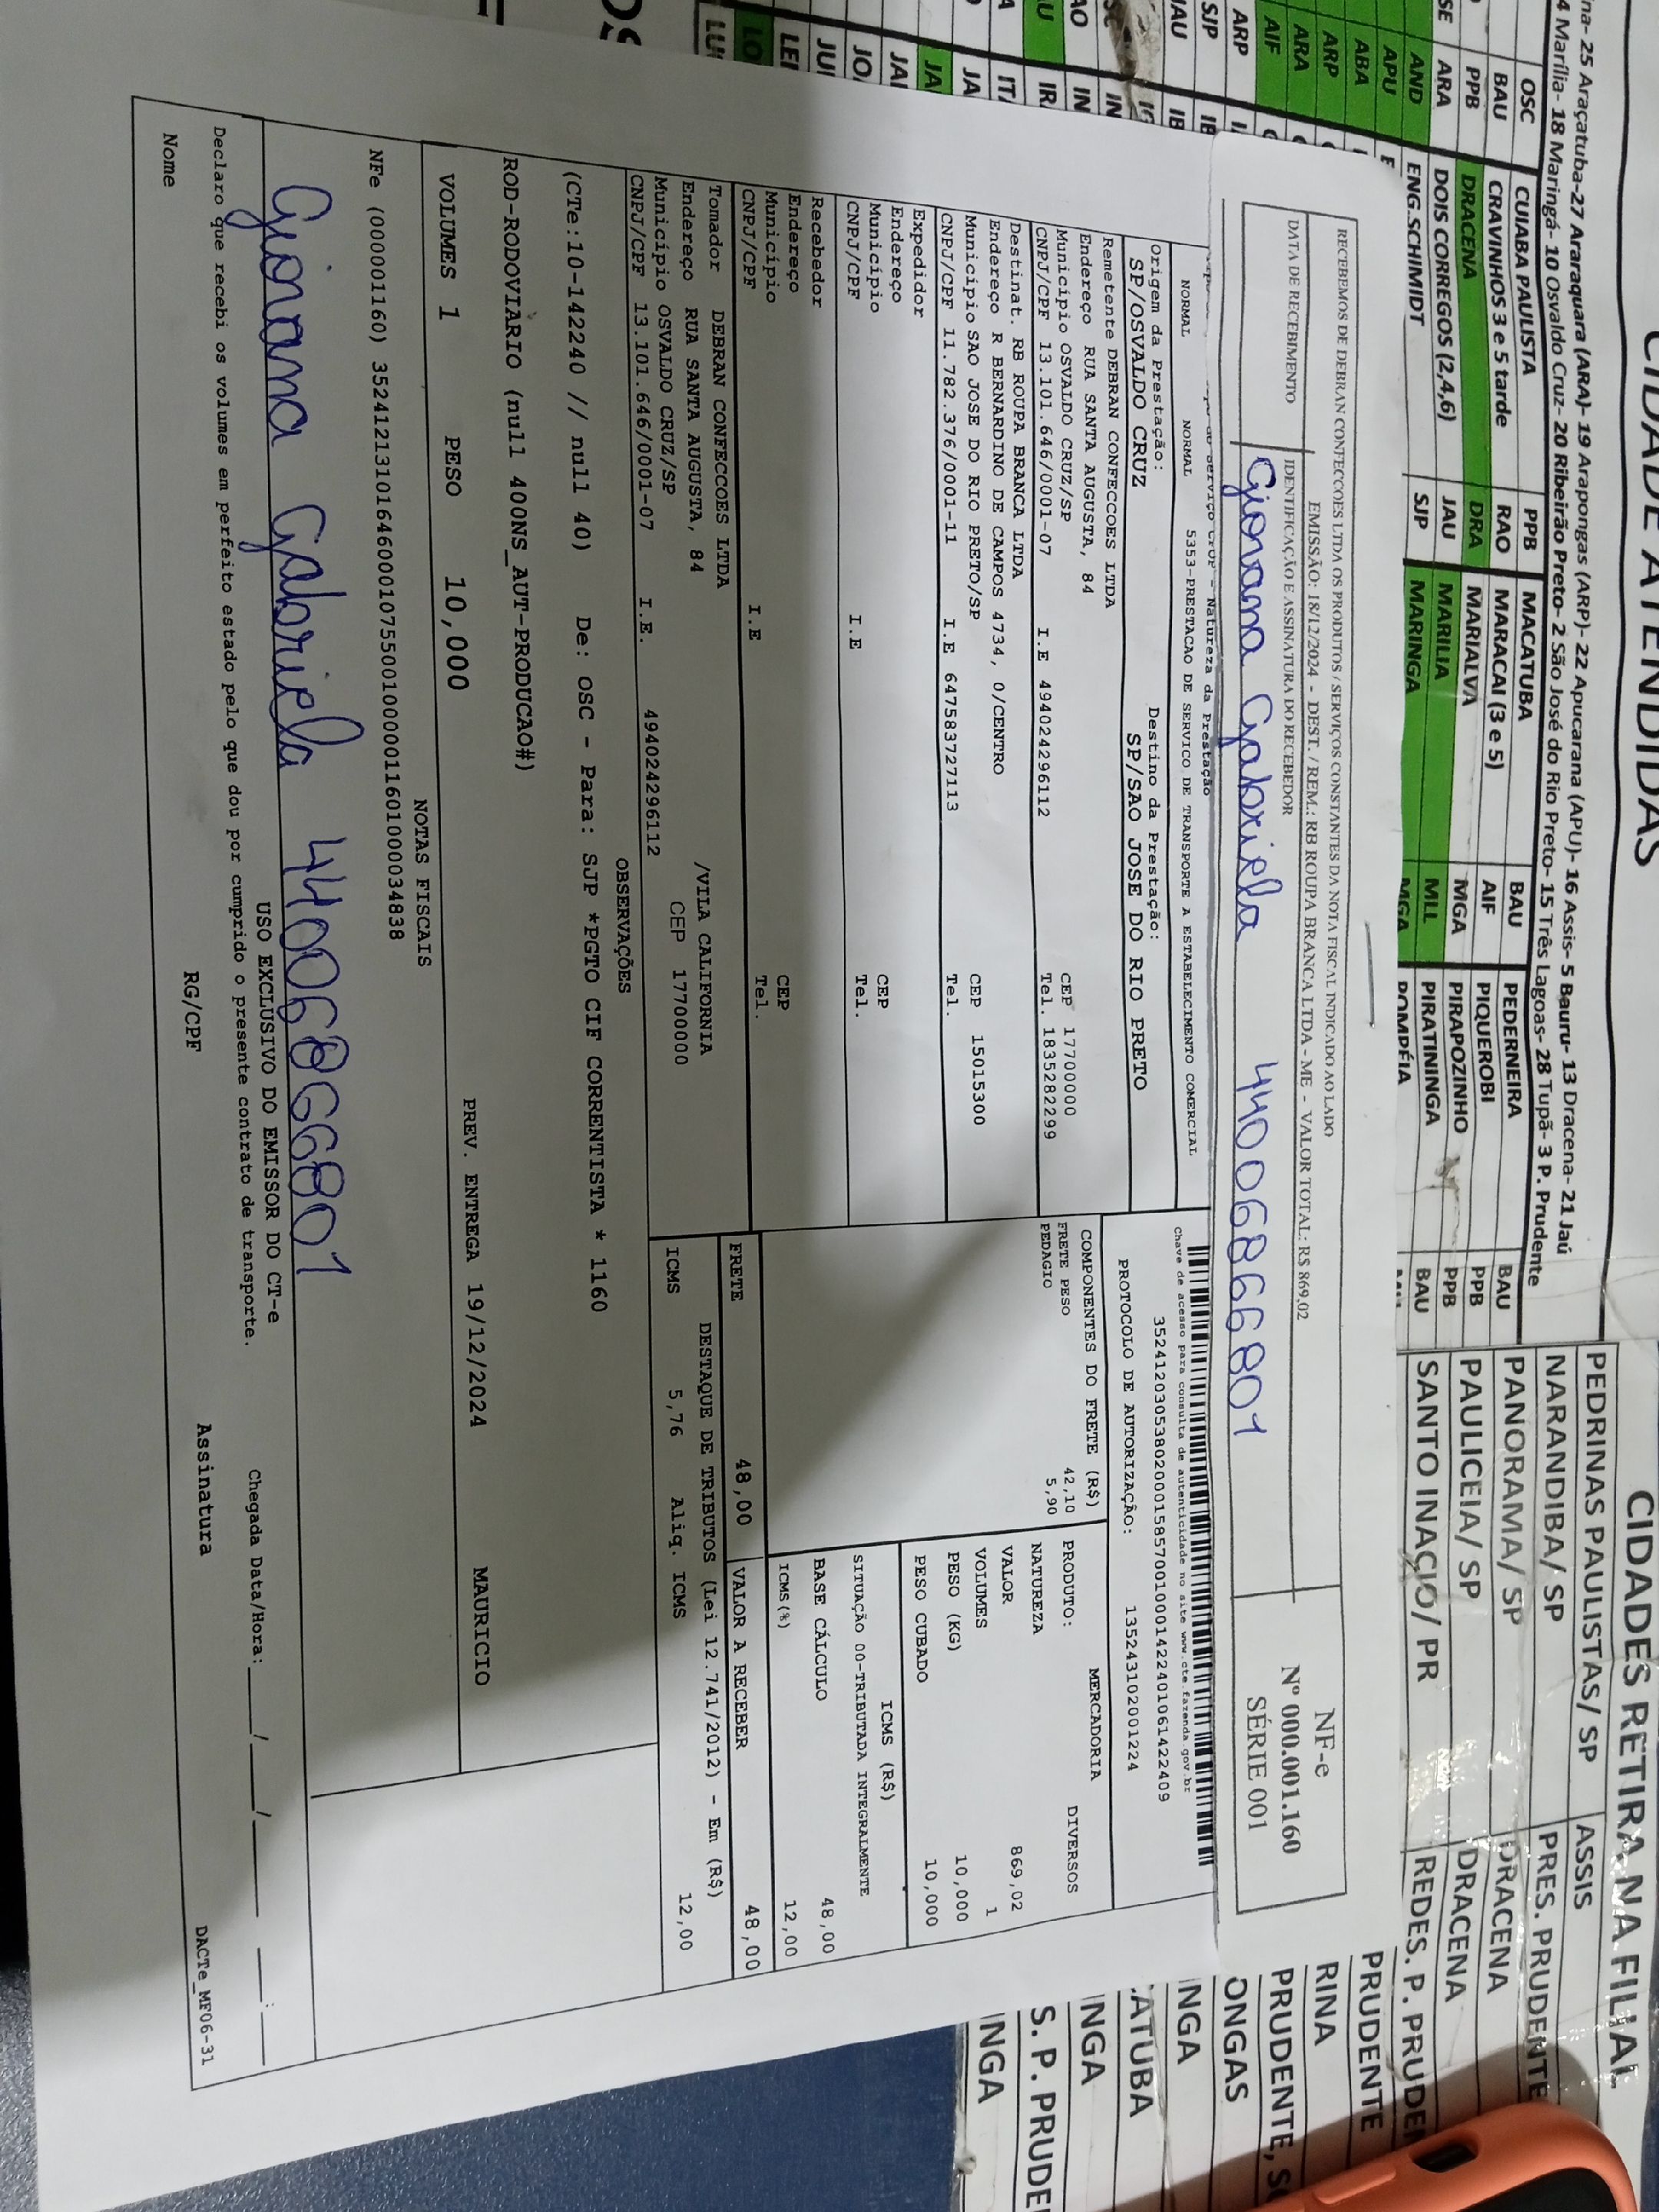 RECEBEMOS DE DEBRAN CONFECCOES LTDA OS PRODUTOS / SERVIÇOS CONSTANTES DA NOTA FISCAL INDICADO AO LADO
EMISSÃO: 18/12/2024 - DEST. / REM.: RB ROUPA BRANCA LTDA - ME - VALOR TOTAL: R$ 869,02
DATA DE RECEBIMENTO
IDENTIFICAÇÃO E ASSINATURA DO RECEBEDOR
Giovana Gabriela 44006866801
NF-e
Nº 000.001.160
SÉRIE 001
Natureza da Prestação
NORMAL NORMAL 5353-PRESTACAO DE SERVICO DE TRANSPORTE A ESTABELECIMENTO COMERCIAL
Origem da Prestação: Destino da Prestação:
SP/OSVALDO CRUZ SP/SAO JOSE DO RIO PRETO
Remetente DEBRAN CONFECCOES LTDA
Endereço RUA SANTA AUGUSTA, 84
Município OSVALDO CRUZ/SP CEP 17700000
CNPJ/CPF 13.101.646/0001-07 I.E 494024296112 Tel. 1835282299
Destinat. RB ROUPA BRANCA LTDA
Endereço R BERNARDINO DE CAMPOS 4734, 0/CENTRO
Município SAO JOSE DO RIO PRETO/SP CEP 15015300
CNPJ/CPF 11.782.376/0001-11 I.E 647583727113 Tel.
Expedidor
Endereço
Município CEP
CNPJ/CPF I.E Tel.
Recebedor
Endereço
Município CEP
CNPJ/CPF I.E Tel.
Tomador DEBRAN CONFECCOES LTDA
Endereço RUA SANTA AUGUSTA, 84 /VILA CALIFORNIA
Município OSVALDO CRUZ/SP CEP 17700000
CNPJ/CPF 13.101.646/0001-07 I.E. 494024296112
Chave de acesso para consulta de autenticidade no site www.cte.fazenda.gov.br
35241203053802000158570010001422401061422409
PROTOCOLO DE AUTORIZAÇÃO: 135243102001224
COMPONENTES DO FRETE (R$)
FRETE PESO 42,10
PEDAGIO 5,90
MERCADORIA
PRODUTO: DIVERSOS
NATUREZA
VALOR 869,02
VOLUMES 1
PESO (KG) 10,000
PESO CUBADO 10,000
ICMS (R$)
SITUAÇÃO 00-TRIBUTADA INTEGRALMENTE
BASE CÁLCULO 48,00
ICMS(%) 12,00
FRETE 48,00 VALOR A RECEBER 48,00
DESTAQUE DE TRIBUTOS (Lei 12.741/2012) - Em (R$)
ICMS 5,76 Aliq. ICMS 12,00
OBSERVAÇÕES
(CTe:10-142240 // null 40) De: OSC - Para: SJP *PGTO CIF CORRENTISTA * 1160
ROD-RODOVIARIO (null 400NS_AUT-PRODUCAO#)
VOLUMES 1 PESO 10,000 PREV. ENTREGA 19/12/2024 MAURICIO
NOTAS FISCAIS
NFe (000001160) 35241213101646000107550010000011601000034838
Giovana Gabriela 44006866801
USO EXCLUSIVO DO EMISSOR DO CT-e
Declaro que recebi os volumes em perfeito estado pelo que dou por cumprido o presente contrato de transporte.
Chegada Data/Hora: ____/____/____ __:__
Nome RG/CPF Assinatura DACTe_MF06-31
CIDADE ATENDIDAS
na- 25 Araçatuba-27 Araraquara (ARA)- 19 Arapongas (ARP)- 22 Apucarana (APU)- 16 Assis- 5 Bauru- 13 Dracena- 21 Jaú
4 Marília- 18 Maringá- 10 Osvaldo Cruz- 20 Ribeirão Preto- 2 São José do Rio Preto- 15 Três Lagoas- 28 Tupã- 3 P. Prudente
OSC CUIABA PAULISTA PPB MACATUBA BAU PEDERNEIRA BAU
BAU CRAVINHOS 3 e 5 tarde RAO MARACAI (3 e 5) AIF PIQUEROBI PPB
PPB DRACENA DRA MARIALVA MGA PIRAPOZINHO PPB
ARA DOIS CORREGOS (2,4,6) JAU MARILIA MLL PIRATININGA BAU
AND ENG.SCHIMDT SJP MARINGA MGA POMPÉIA
APU
ABA
ARP
ARA
AIF
ARP
SJP
CIDADES RETIRA NA FILIAL
PEDRINAS PAULISTAS/ SP ASSIS
NARANDIBA/ SP PRES. PRUDENTE
PANORAMA/ SP DRACENA
PAULICEIA/ SP DRACENA
SANTO INACIO/ PR REDES. P. PRUDEN
PRUDENTE
RINA
PRUDENTE, S
ONGAS
NGA
ATUBA
NGA
S. P. PRUDE
NGA